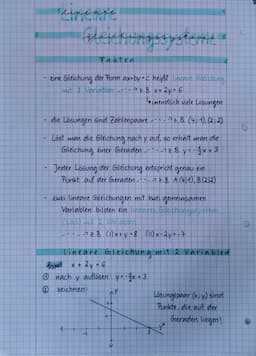 Lineare
Gleichungssysteme
Fakten
- eine Gleichung der Form ax+by=c heißt lineare Gleichung
mit 2 Variablen → z.B. x+2y=6
unendlich viele Lösungen
- die Lösungen sind Zahlenpaare → z.B. (4;1),(2;2)
- Löst man die Gleichung nach y auf, so erhält man die
Gleichung einer Geraden → z.B. y=-½x+3
- Jeder Lösung der Gleichung entspricht genau ein
Punkt auf der Geraden → z.B. A(4|1), B(2|2)
- zwei lineare Gleichungen mit zwei gemeinsamen
Variablen bilden ein lineares Gleichungssystem
→ z.B. (I) x+y=8 (II) x-2y=-7
lineare Gleichung mit 2 Variablen
Bspl. x+2y=6
① nach y auflösen: y=-½x+3
② zeichnen:
y
x
Lösungspaar (x;y) sind
Punkte, die auf der
Geraden liegen!